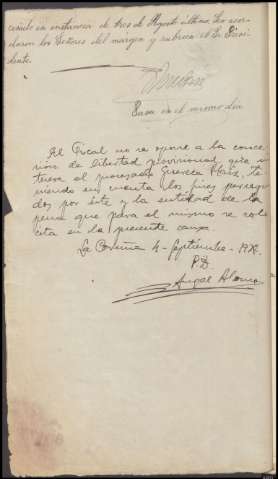 en instancia de tres de Agosto último. Lo acor-
daron los Señores del margen y rubrica el Sr. Presi-
dente.
Pasa en el mismo día
Al Fiscal no se opone a la conce-
sión de libertad provisional que in-
teresa el procesado te-
niendo en cuenta los fines persegui-
dos por éste y la entidad de la
pena que para el mismo se soli-
cita en la presente causa
La Coruña 4 - Septiembre -
P.D.
Angel